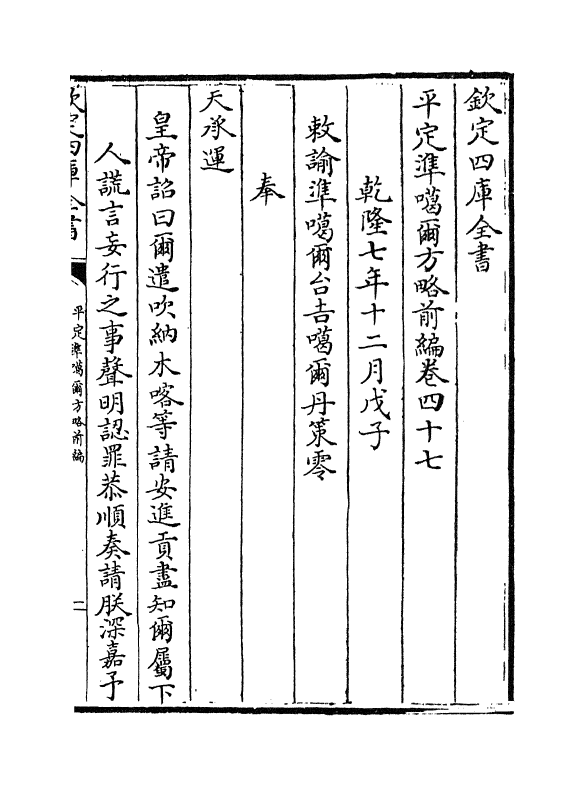 欽定四庫全書
平定準噶爾方略前編卷四十七
乾隆七年十二月戊子
敕諭準噶爾台吉噶爾丹策零
奉
天承運
皇帝詔曰爾遣吹納木喀等請安進貢盡知爾屬下
人謊言妄行之事聲明認罪恭順奏請朕深嘉予
欽定四庫全書
平定準噶爾方略前編